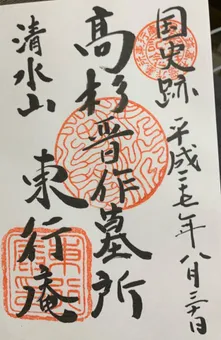 国史跡 平成二七年八月三十日
高杉晋作墓所
清水山 東行庵